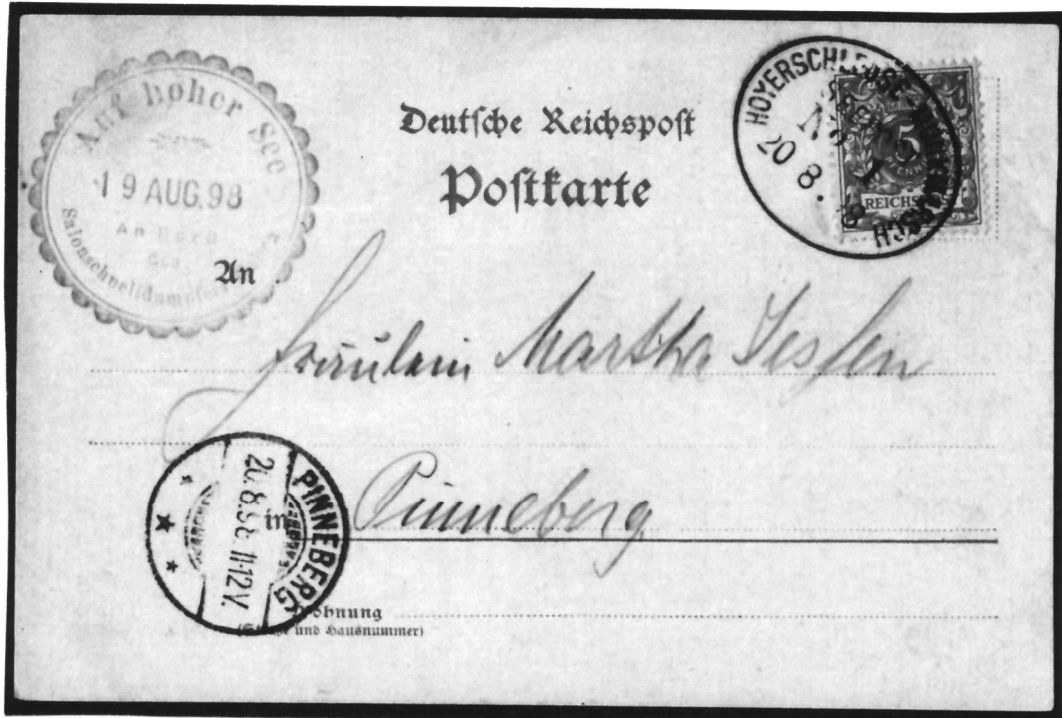 Auf hoher See
19 AUG. 98
An Bord
des
Salonschnelldampfers
Deutsche Reichspost
Postkarte
HOYERSCHLEUSE
20 8
5
REICHSPOST
An
Fräulein Martha Jessen
in Pinneberg
PINNEBERG
20.8.98. 11-12 V.
Wohnung
(Straße und Hausnummer)